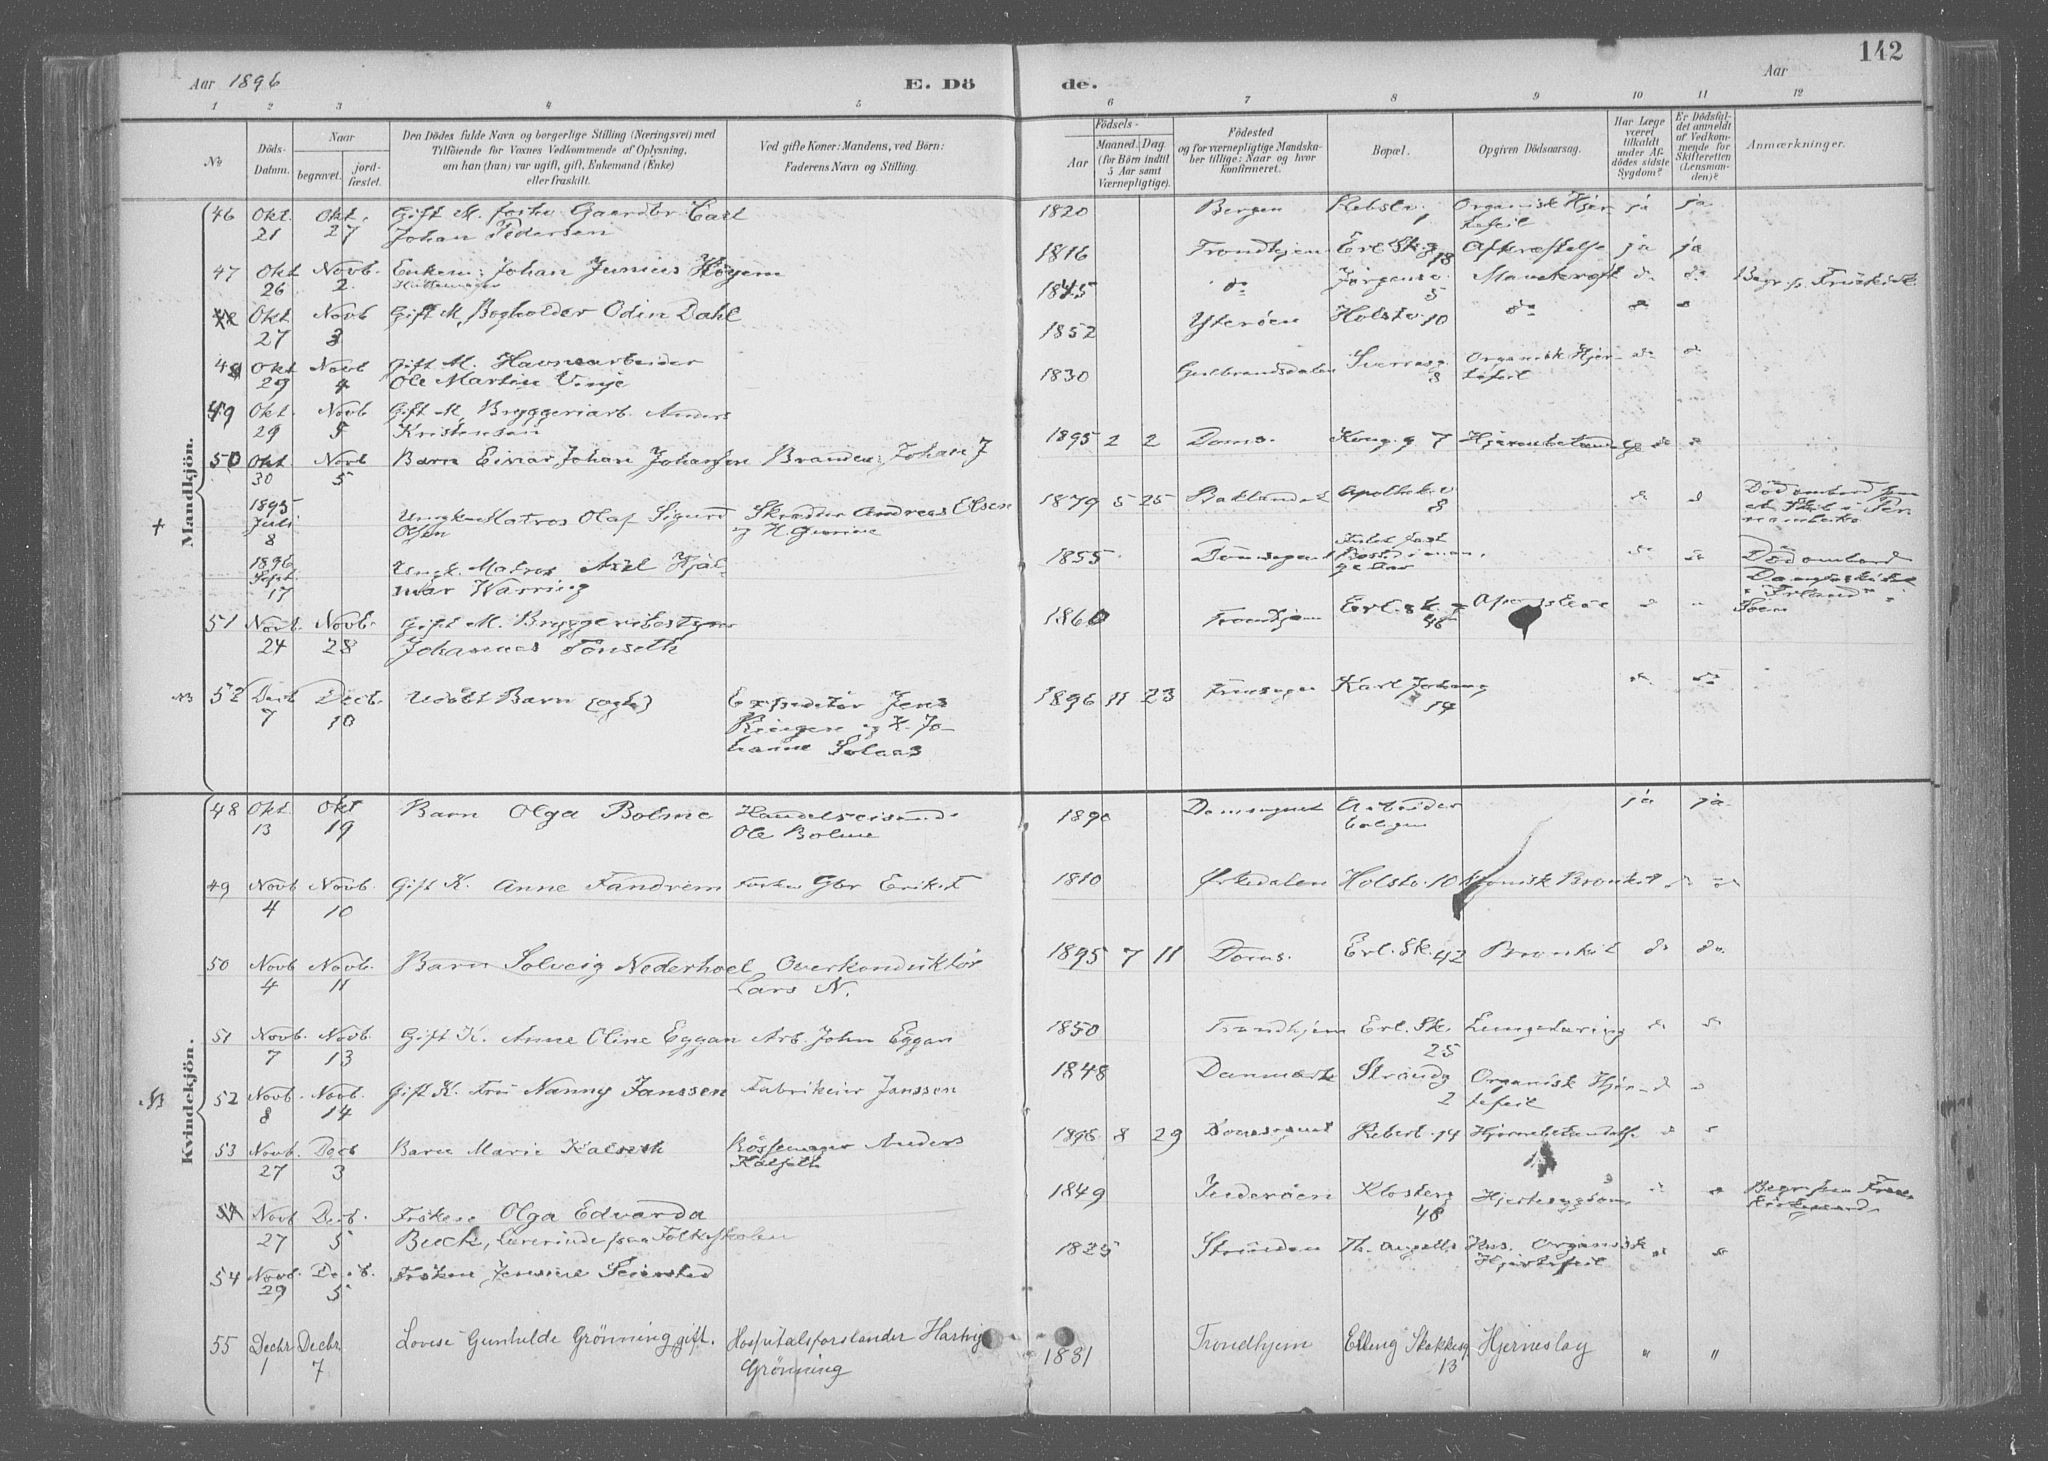 Aar 1896
E. Dö
de.
Aar
142
1 2 3 4 5 6 7 8 9 10 11 12
No
Döds-Datum.
Naar
begravet.
jord-fæstet.
Den Dödes fulde Navn og borgerlige Stilling (Næringsvei) med
Tilföiende for Voxnes Vedkommende af Oplysning,
om han (hun) var ugift, gift, Enkemand (Enke)
eller fraskilt.
Ved gifte Koner: Mandens, ved Börn:
Faderens Navn og Stilling.
Födsels-
Aar
Maaned. Dag
(for Börn indtil
5 Aar samt
Værnepligtige).
Födested
og for værnepligtige Mandska-
ber tillige: Naar og hvor
konfirmeret.
Bopæl.
Opgiven Dödsaarsag.
Har Læge
været
tilkaldt
under Af-
dödes sidste
Sygdom?
Er Dödsfal-
det anmeldt
af Vedkom-
mende for
Skifteretten
(Lensman-
den)?
Anmærkninger.
Mandkjön.
46 Okt. Okt. Gift M. forhv. Gaardbr. Carl 1820 Bergen Rebslv. Organisk Hjer ja ja
21 27 Johan Pedersen 1 tefeil
1816 Trondhjem Erl. Sk.g Afkræftelse ja ja
18
47 Okt Novb. Enkem: Johan Junius Höyem 1845 do Jörgensv. Mavekræft do do Begr. p. Frue Kirk
26 2. 5
Okt Novb Gift M, Bogholder Odin Dahl 1852 Ytteröen Holstv. 10 do do
27 3
48 Okt Novb Gift M. Havnearbeider 1830 Gulbrandsdalen Sverresg Organisk Hjer do do
29 4 Ole Martin Vinje 8 tefeil
49 Okt. Novb Gift M. Bryggeriarb. Anders
29 5 Kristensen
50 Okt Novb Barn Einar Johan Johansen Branden: Johan J 1895 2 2 Doms. Kong. g 7 Hjernebetændelse do
30 5
+ 1895 Ungk. Matros Olaf Sigurd Skrædder Andreas Olsen 1879 5 25 Baklandet Apothek. v do d Död ombord paa
Juli Olsen og H. 8 et Skib i Per
8 nambuko
1896 Ungk. Matros Axel Hjal- 1855 Domsognet do do Död ombord
Sept. mar Warring
17
51 Novb. Novb. Gift M. Bryggeribestyrer 1860 Trondhjem Erl. sk. g
24 28 Johannes Tönseth 46
NB 52 Decb Decb. Udöbt Barn (ægte) Expeditör Jens 1896 11 23 Karl Johansg do do
7 10 Ringen og H. Jo- 14
hanne Solaas
Kvindekjön.
48 Okt Okt Barn Olga Bolme Handelsreisende 1890 Domsognet Arbeider ja ja
13 19 Ole Bolme boligen
49 Novb Novb. Gift K. Anne Fandrem Forhv Gbr Erik F 1810 Örkedalen Holstv. 10 Kronisk Bronkit do do
4 10
50 Novb Novb. Barn Solveig Nederhoel Overkonduktör 1895 7 11 Doms. Erl. Sk. 42 Bronkit do do
4 11 Lars N.
51 Novb. Novb. Gift K. Anne Oline Eggan Arb. John Eggan 1850 Trondhjem Erl. Sk. Lungetæring do do
7 13 25
NB 52 Novb. Novb. Gift K. Fru Nanny Janssen Fabrikeier Janssen 1848 Danmark Strandg Organisk Hjer
8 14 2 tefeil
53 Novb. Decb Barn Marie Kalseth Bössemager Anders 1896 8 29 Domsognet Rebert. 14 Hjernebetændelse
27 3 Kalseth
Novb Decb. Fröken Olga Edvarda 1849 Inderöen Klosterg Hjertesygdom Begr. paa Frue
27 5 Buck, Lærerinde paa Folkeskolen 48 Kirkegaard
54 Novb. Decb. Fröken Jensine Seiersted 1825 Strinden Th. Angells Hus. Organisk
29 5 Hjertefeil
55 Decbr Decbr, Lovise Gunhilde Grönning gift. Hospitalsforstander Hartvig 1831 Trondhjem Elling Skakkesg. Hjerneslag " "
1 7 Grönning 13